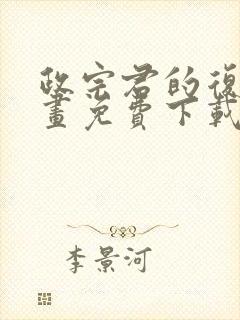 政宗君的復
畫免費下載
李景河